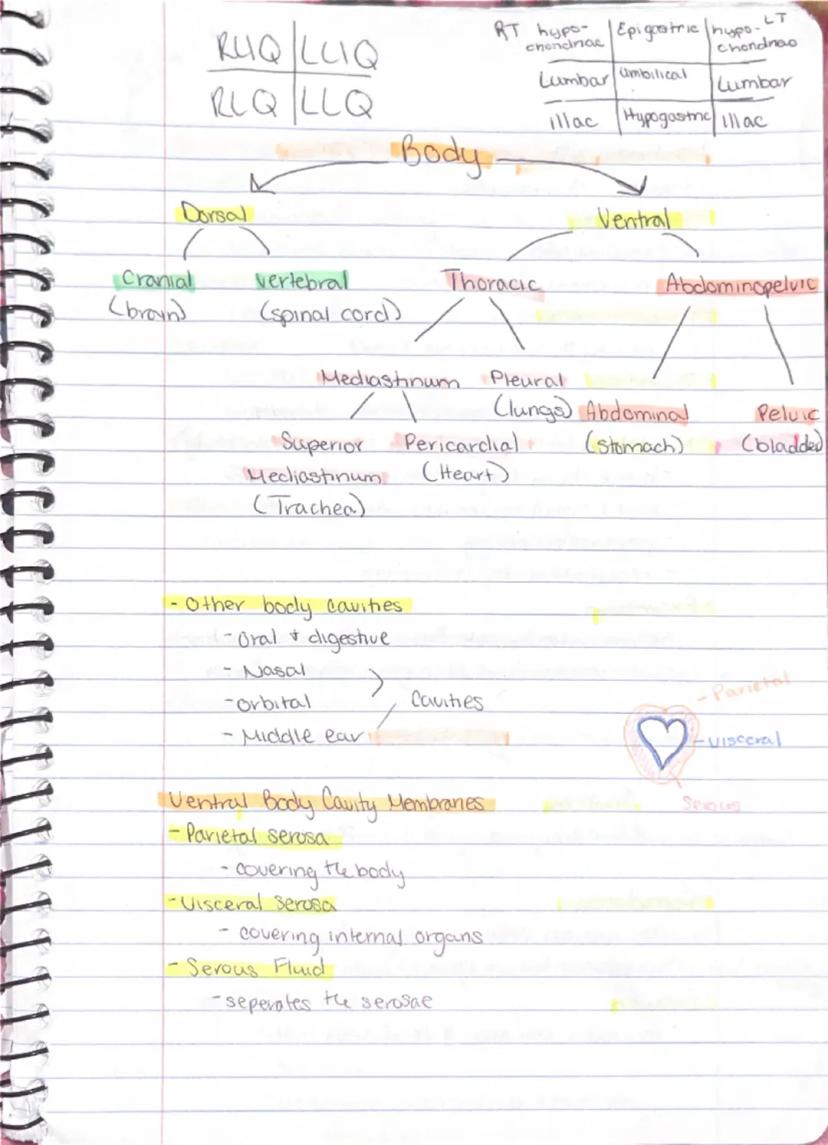 RUQ LUQ
RLQ LLQ
RT hypo- Epigastric hypo- LT
chondriac chondriac
Lumbar umbilical Lumbar
illac Hypogastric illac
Body
Dorsal Ventral
Cranial vertebral Thoracic Abdominopelvic
(brain) (spinal cord)
Mediastinum Pleural
(lungs) Abdominal Pelvic
Superior Pericardial (stomach) (bladder)
Mediastinum (Heart)
(Trachea)
- Other body cavities
- Oral & digestive
- Nasal
- orbital Cavities
- Middle ear
- Parietal
- visceral
serous
Ventral Body Cavity Membranes
- Parietal serosa
- covering the body
- Visceral serosa
- covering internal organs
- Serous Fluid
- seperates the serosae